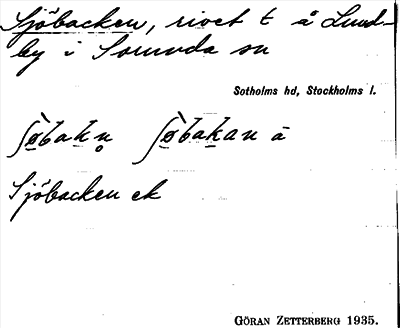 Sjöbacken, rivet t å Lund-
by i Sorunda sn
Sotholms hd, Stockholms l.
ʃø̀bakn̥ ʃø̀bakan ā
Sjöbacken ek
GÖRAN ZETTERBERG 1935.